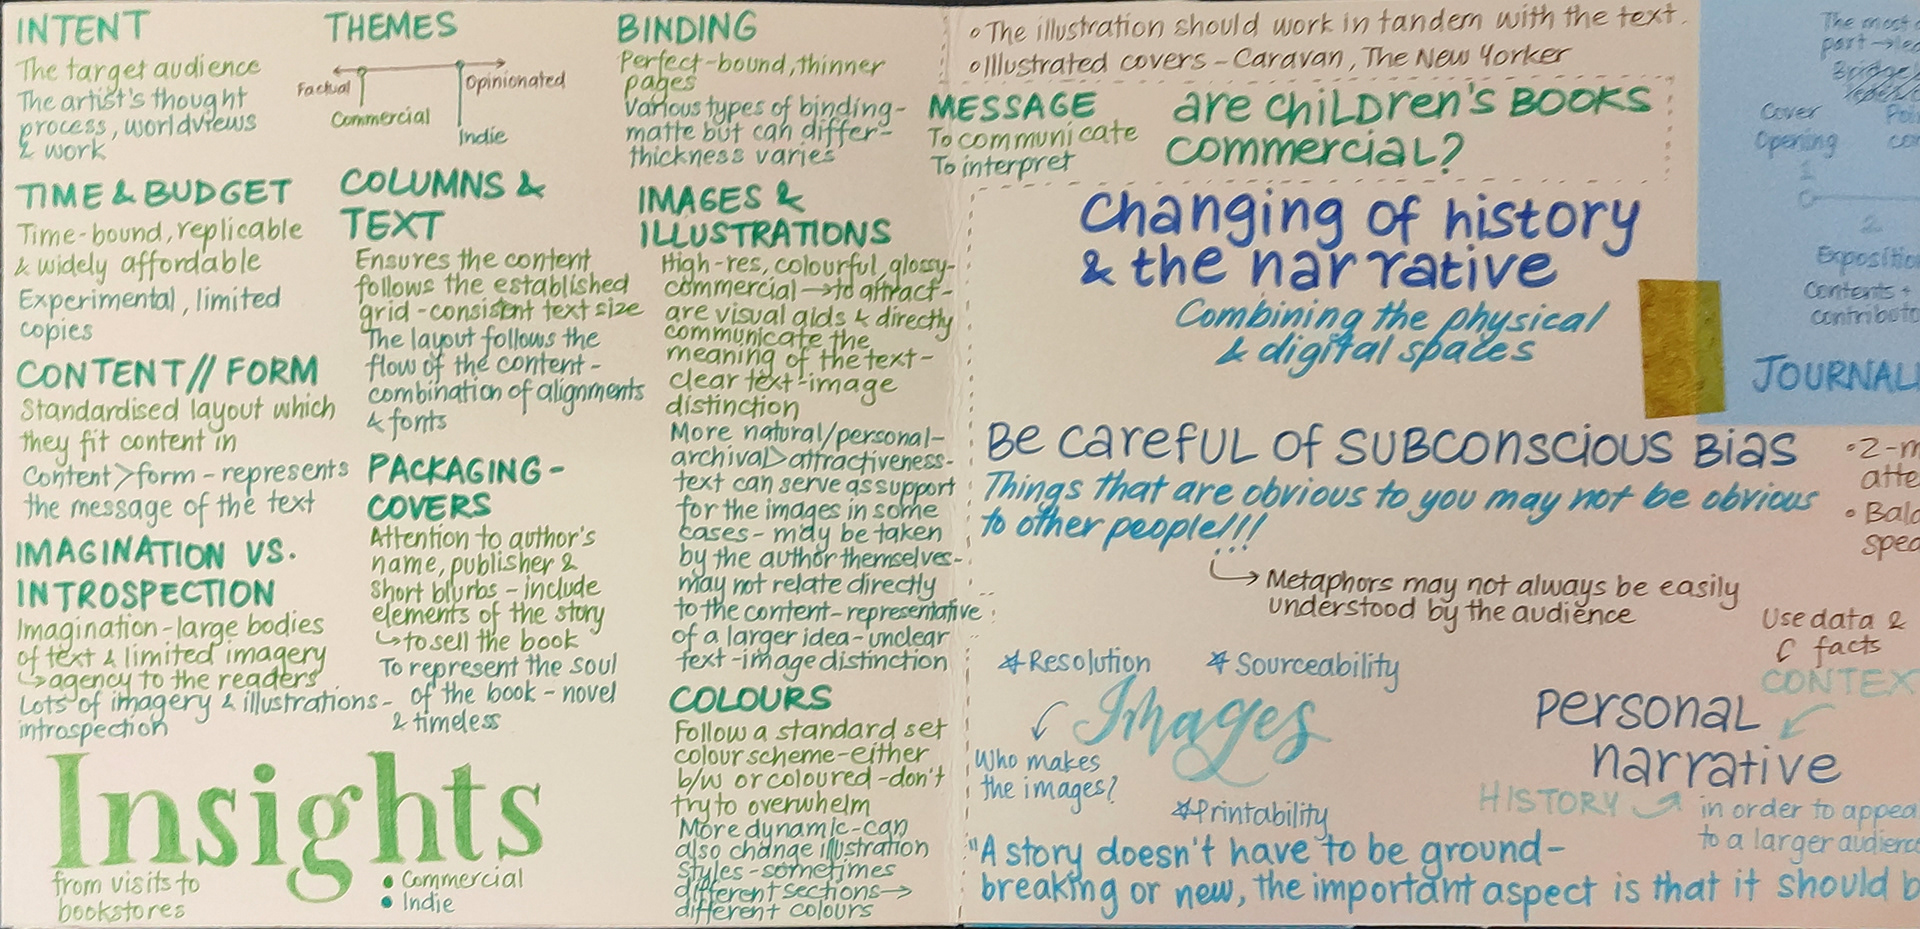 INTENT
The target audience
The artist's thought
process, worldviews
& work
TIME & BUDGET
Time-bound, replicable
& widely affordable
Experimental, limited
copies
CONTENT // FORM
Standardised layout which
they fit content in
Content > form - represents
the message of the text
IMAGINATION VS.
INTROSPECTION
Imagination - large bodies
of text & limited imagery
↳ agency to the readers
Lots of imagery & illustrations -
introspection
Insights
from visits to
bookstores
• Commercial
• Indie
THEMES
Factual
Opinionated
Commercial
Indie
COLUMNS &
TEXT
Ensures the content
follows the established
grid - consistent text size
The layout follows the
flow of the content -
combination of alignments
& fonts
PACKAGING -
COVERS
Attention to author's
name, publisher &
short blurbs - include
elements of the story
↳ to sell the book
To represent the soul
of the book - novel
& timeless
BINDING
Perfect-bound, thinner
pages
Various types of binding -
matte but can differ -
thickness varies
IMAGES &
ILLUSTRATIONS
High-res, colourful, glossy -
commercial → to attract -
are visual aids & directly
communicate the
meaning of the text -
clear text-image
distinction
More natural/personal -
archival > attractiveness -
text can serve as support
for the images in some
cases - may be taken
by the author themselves -
may not relate directly
to the content - representative
of a larger idea - unclear
text-image distinction
COLOURS
Follow a standard set
colour scheme - either
b/w or coloured - don't
try to overwhelm
More dynamic - can
also change illustration
styles - sometimes
different sections →
different colours
• The illustration should work in tandem with the text.
• Illustrated covers - Caravan, The New Yorker
MESSAGE
To communicate
To interpret
are children's BOOKS
commercial?
Changing of history
& the narrative
Combining the physical
& digital spaces
Be careful of subconscious Bias
Things that are obvious to you may not be obvious
to other people!!!
↳ Metaphors may not always be easily
understood by the audience
* Resolution
* Sourceability
Images
Who makes
the images?
* Printability
Use data &
facts
CONTEX
personal
narrative
HISTORY
in order to appea
to a larger audienc
"A story doesn't have to be ground-
breaking or new, the important aspect is that it should b
The most
part →
Bridge
Cover
Opening
1
2
Expositio
Contents +
contributo
JOURNAL
• 2-m
atte
• Bala
spec